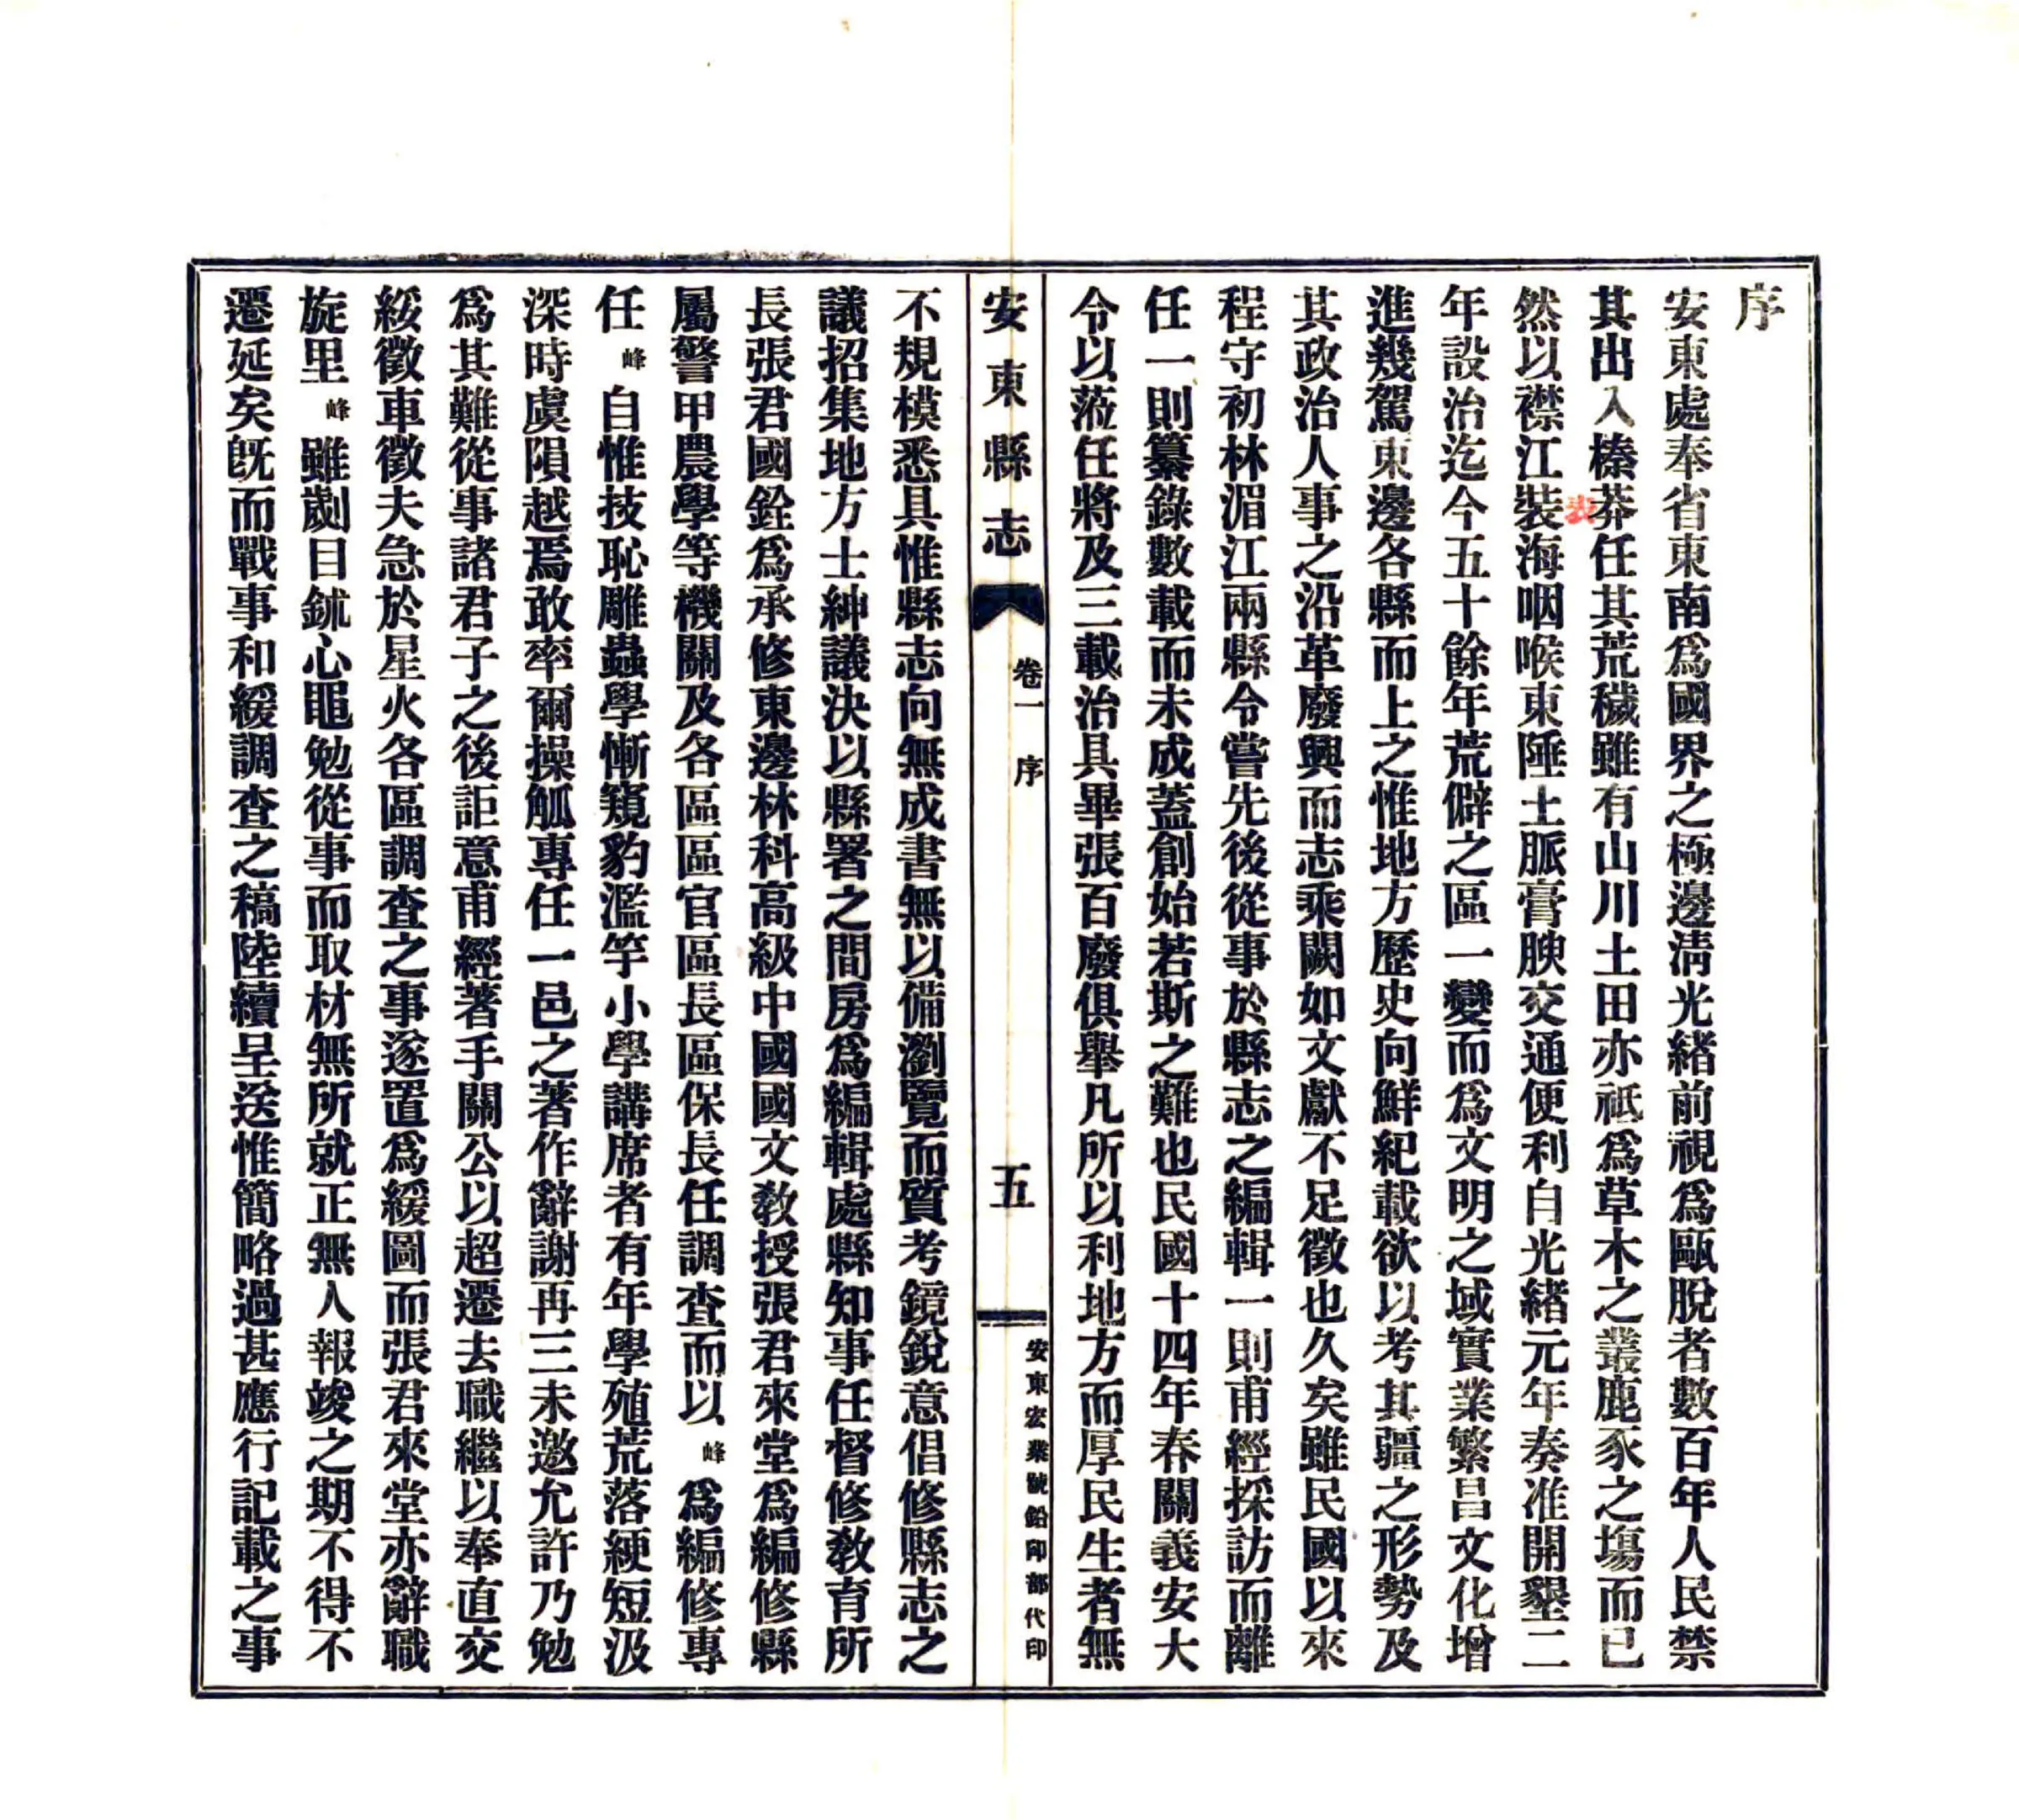 序
安東處奉省東南爲國界之極邊淸光緖前視爲甌脫者數百年人民禁
其出入榛莽任其荒穢雖有山川土田亦祇爲草木之叢鹿豕之塲而已
表
然以襟江裝海咽喉東陲土脈膏腴交通便利自光緖元年奏准開墾二
年設治迄今五十餘年荒僻之區一變而爲文明之域實業繁昌文化增
進幾駕東邊各縣而上之惟地方歷史向鮮紀載欲以考其疆之形勢及
其政治人事之沿革廢興而志乘闕如文獻不足徵也久矣雖民國以來
程守初林湄江兩縣令嘗先後從事於縣志之編輯一則甫經採訪而離
任一則纂錄數載而未成蓋創始若斯之難也民國十四年春關義安大
令以蒞任將及三載治具畢張百廢俱舉凡所以利地方而厚民生者無
安東縣志
卷一 序
五
安東宏業號鉛印部代印
不規模悉具惟縣志向無成書無以備瀏覽而質考鏡銳意倡修縣志之
議招集地方士紳議決以縣署之間房爲編輯處縣知事任督修敎育所
長張君國銓爲承修東邊林科高級中國國文敎授張君來堂爲編修縣
屬警甲農學等機關及各區區官區長區保長任調查而以峰爲編修專
任峰自惟技恥雕蟲學慚窺豹濫竽小學講席者有年學殖荒落綆短汲
深時虞隕越焉敢率爾操觚專任一邑之著作辭謝再三未邀允許乃勉
爲其難從事諸君子之後詎意甫經著手關公以超遷去職繼以奉直交
綏徵車徵夫急於星火各區調查之事遂置爲緩圖而張君來堂亦辭職
旋里峰雖劌目鉥心黽勉從事而取材無所就正無人報竣之期不得不
遷延矣旣而戰事和緩調查之稿陸續呈送惟簡略過甚應行記載之事